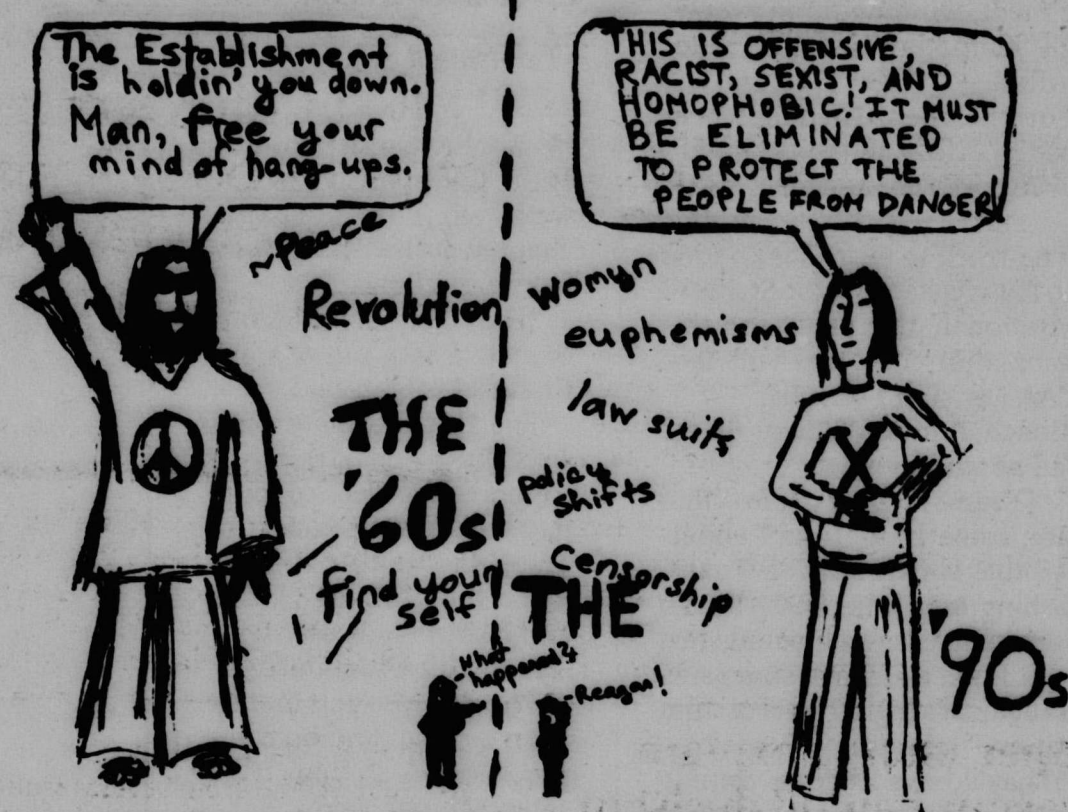 The Establishment
is holdin' you down.
Man, free your
mind of hang-ups.
~Peace
Revolution
THE
'60s
find your
self
THIS IS OFFENSIVE,
RACIST, SEXIST, AND
HOMOPHOBIC! IT MUST
BE ELIMINATED
TO PROTECT THE
PEOPLE FROM DANGER
womyn
euphemisms
law suits
policy
shifts
censorship
THE
'90s
X
-What
happened?
-Reagan!